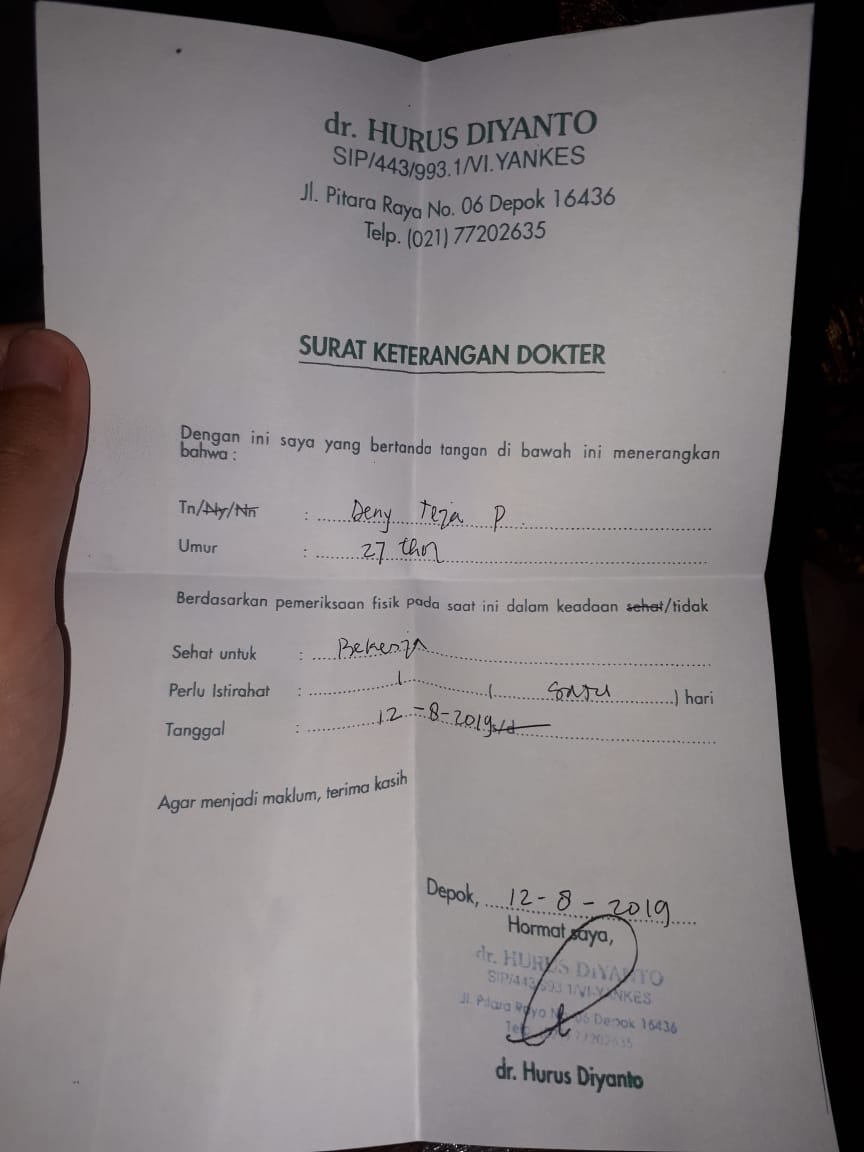 dr. HURUS DIYANTO
SIP/443/993.1/VI.YANKES
Jl. Pitara Raya No. 06 Depok 16436
Telp. (021) 77202635
SURAT KETERANGAN DOKTER
Dengan ini saya yang bertanda tangan di bawah ini menerangkan
bahwa :
Tn/Ny/Nn : Deny Teja P
Umur : 27 thn
Berdasarkan pemeriksaan fisik pada saat ini dalam keadaan sehat/tidak
Sehat untuk : Bekerja
Perlu Istirahat : 1 ( satu ) hari
Tanggal : 12 - 8 - 2019 s/d
Agar menjadi maklum, terima kasih
Depok, 12 - 8 - 2019
Hormat saya,
dr. HURUS DIYANTO
SIP/443/993.1/VI-YANKES
Jl. Pitara Raya No. 06 Depok 16436
77202635
dr. Hurus Diyanto